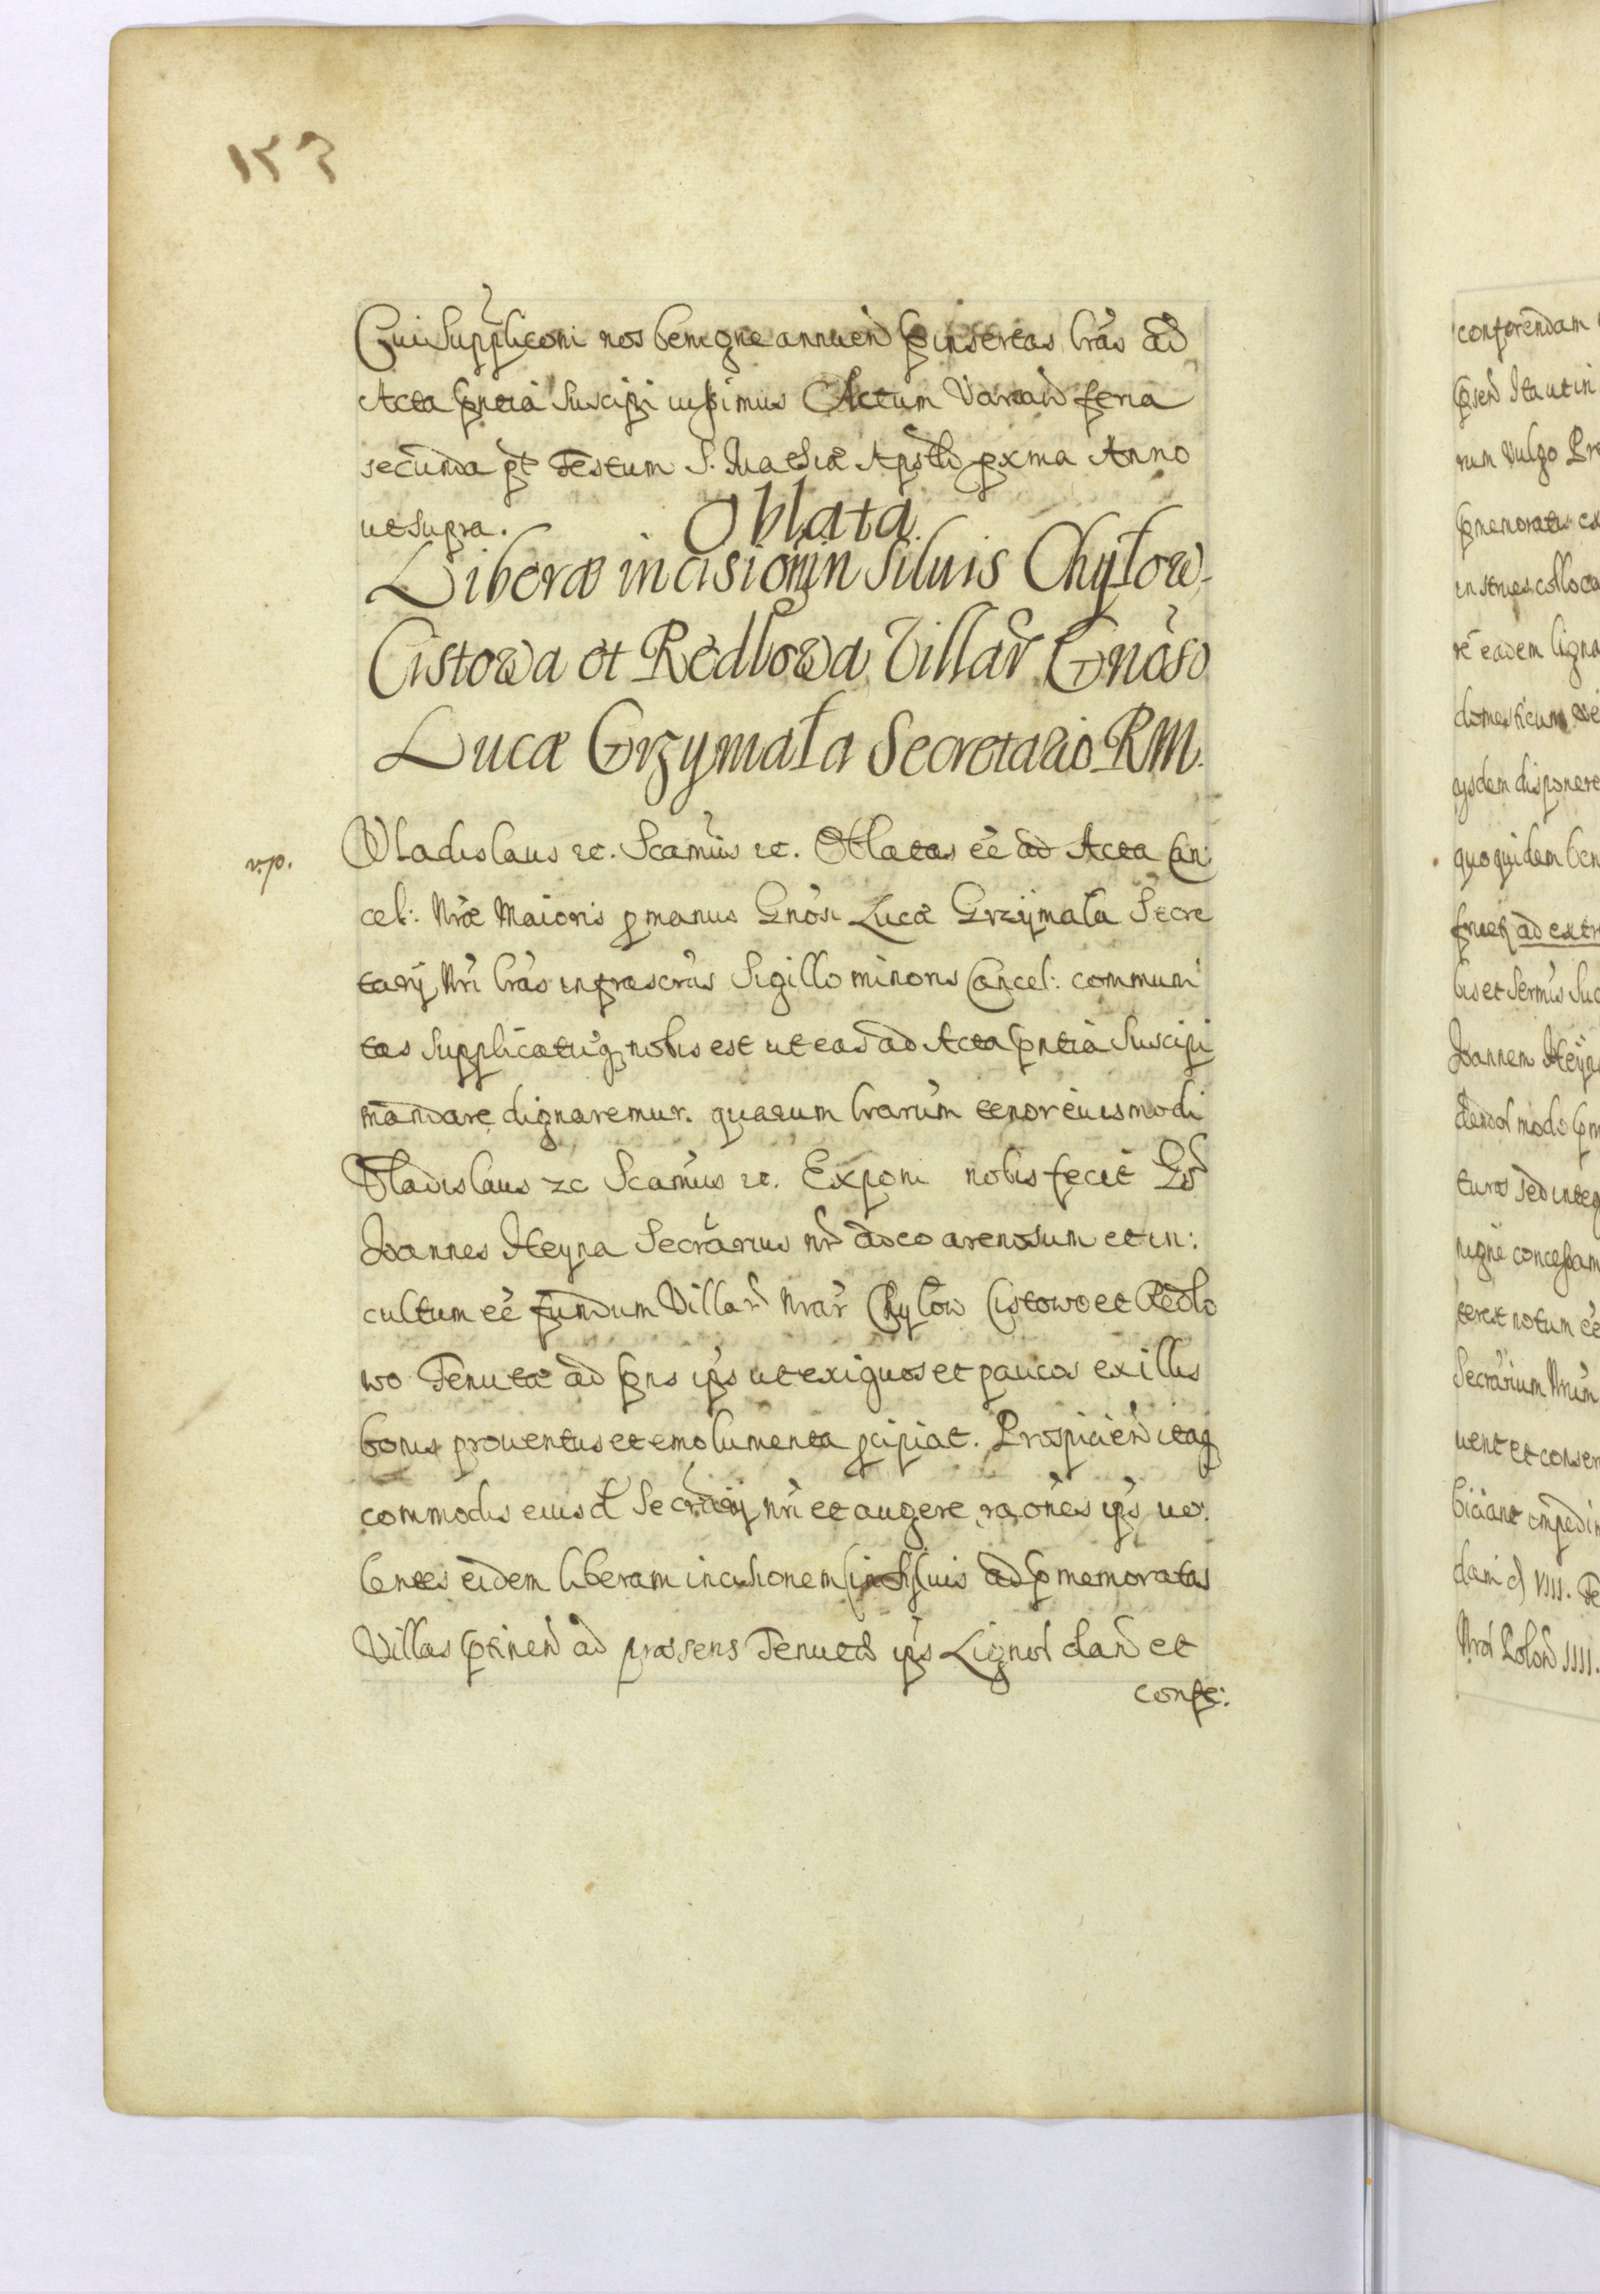 153
Cui Suppliconi nos benigne annuen̄ p̄insertas lrās ad
Acta pn̄tia Suscipi iussimus Actum Varsav̄ feria
secunda pt Festum S. Mathiæ Apst̄li pxma Anno
ut supra.
Oblata
Liberæ incisionis in Siluis Chyłow
Cistowa et Redlowa Villar̄ Gnōso
Lucæ Grzymała Secretario RM.
v.p.
Vladislaus etc. Scamus etc. Oblatas eē ad Acta Can:
cel: Nrāe Maioris p manus Gnōsi Lucæ Grzymała Secre
tarij Nrī lrās infrascrās Sigillo minoris Cancel: communi
tas Supplicatūq nobis est ut eas ad Acta pn̄tia Suscipi
mandare dignaremur. quarum lrarūm tenor eiusmodi
Vladislaus etc Scamus etc. Exponi nobis fecit Gs̄
Joannes Heyna Secrārius nr̄ adeo arenosum et in:
cultum eē fundum Villar̄ Nrār̄ Chyłow Cistowo et Redło
wo Tenutæ ad pn̄s ips̄ ut exiguos et paucos ex illis
bonis prouentus et emolumenta pcipiat. Prospicien̄ itaq
commodis eiusd̄ Secrārij nrī et augere raōnes ips̄ uo
lentes eidem liberam incisionem in Syluis ad p̄memoratas
Villas ptinen̄ ad præsens Tenutæ ips̄ Lignor̄ dan̄ et
confe:
conferendam
rum vulgo
in strues colloca
re eadem ligna
domesticum
eiusdem disponere
quo quidem ben
fruet̄ ad extr
bis et Sermīs Suc
Joannem Heyn
turos sed integ
nigne concessam
terest notum eē
Secrārium Nrūm
uent et conser